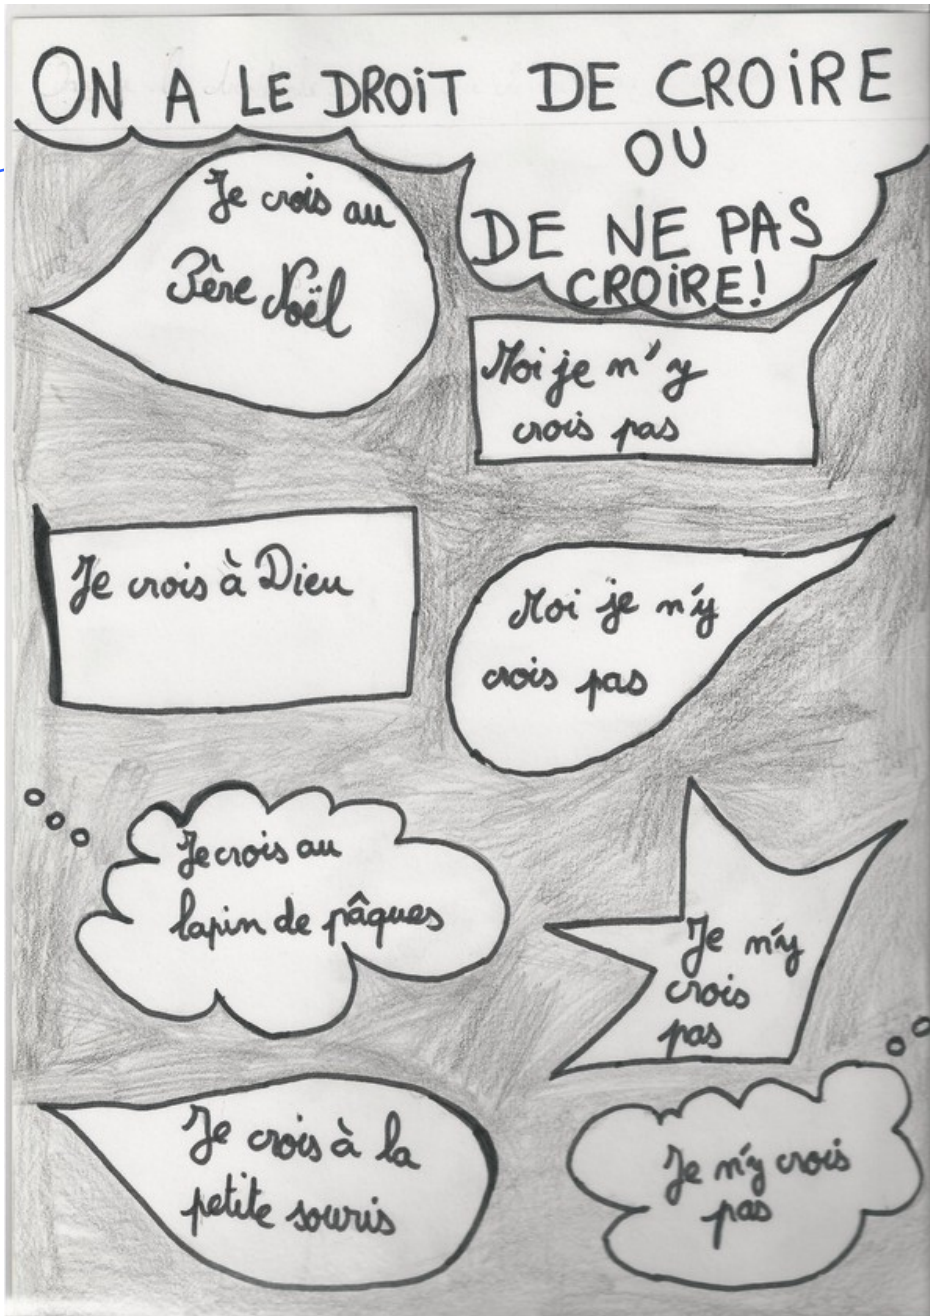 ON A LE DROIT DE CROIRE
OU
DE NE PAS
CROIRE!
Je crois au
Père Noël
Moi je n'y
crois pas
Je crois à Dieu
Moi je n'y
crois pas
Je crois au
lapin de pâques
Je n'y
crois
pas
Je crois à la
petite souris
Je n'y crois
pas